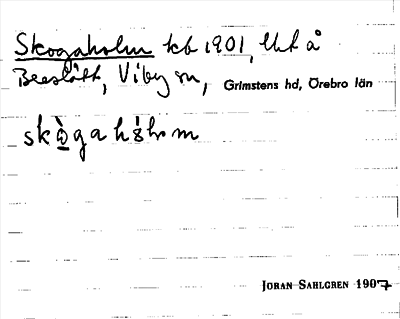 Skogaholm kb 1901, Uht å
Breslått, Viby sn, Grimstens hd, Örebro län
skògahòlm
JÖRAN SAHLGREN 1907